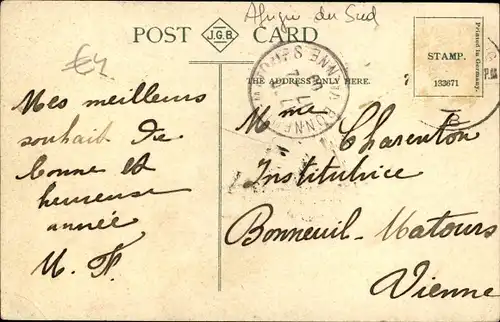 Afrique du Sud
POST J.G.B. CARD
£4
THE ADDRESS ONLY HERE.
STAMP.
133671
Printed in Germany.
Mes meilleurs
souhait de
bonne et
heureuse
année
M. F.
Mme Charenton
Institutrice
Bonneuil-Matours
Vienne